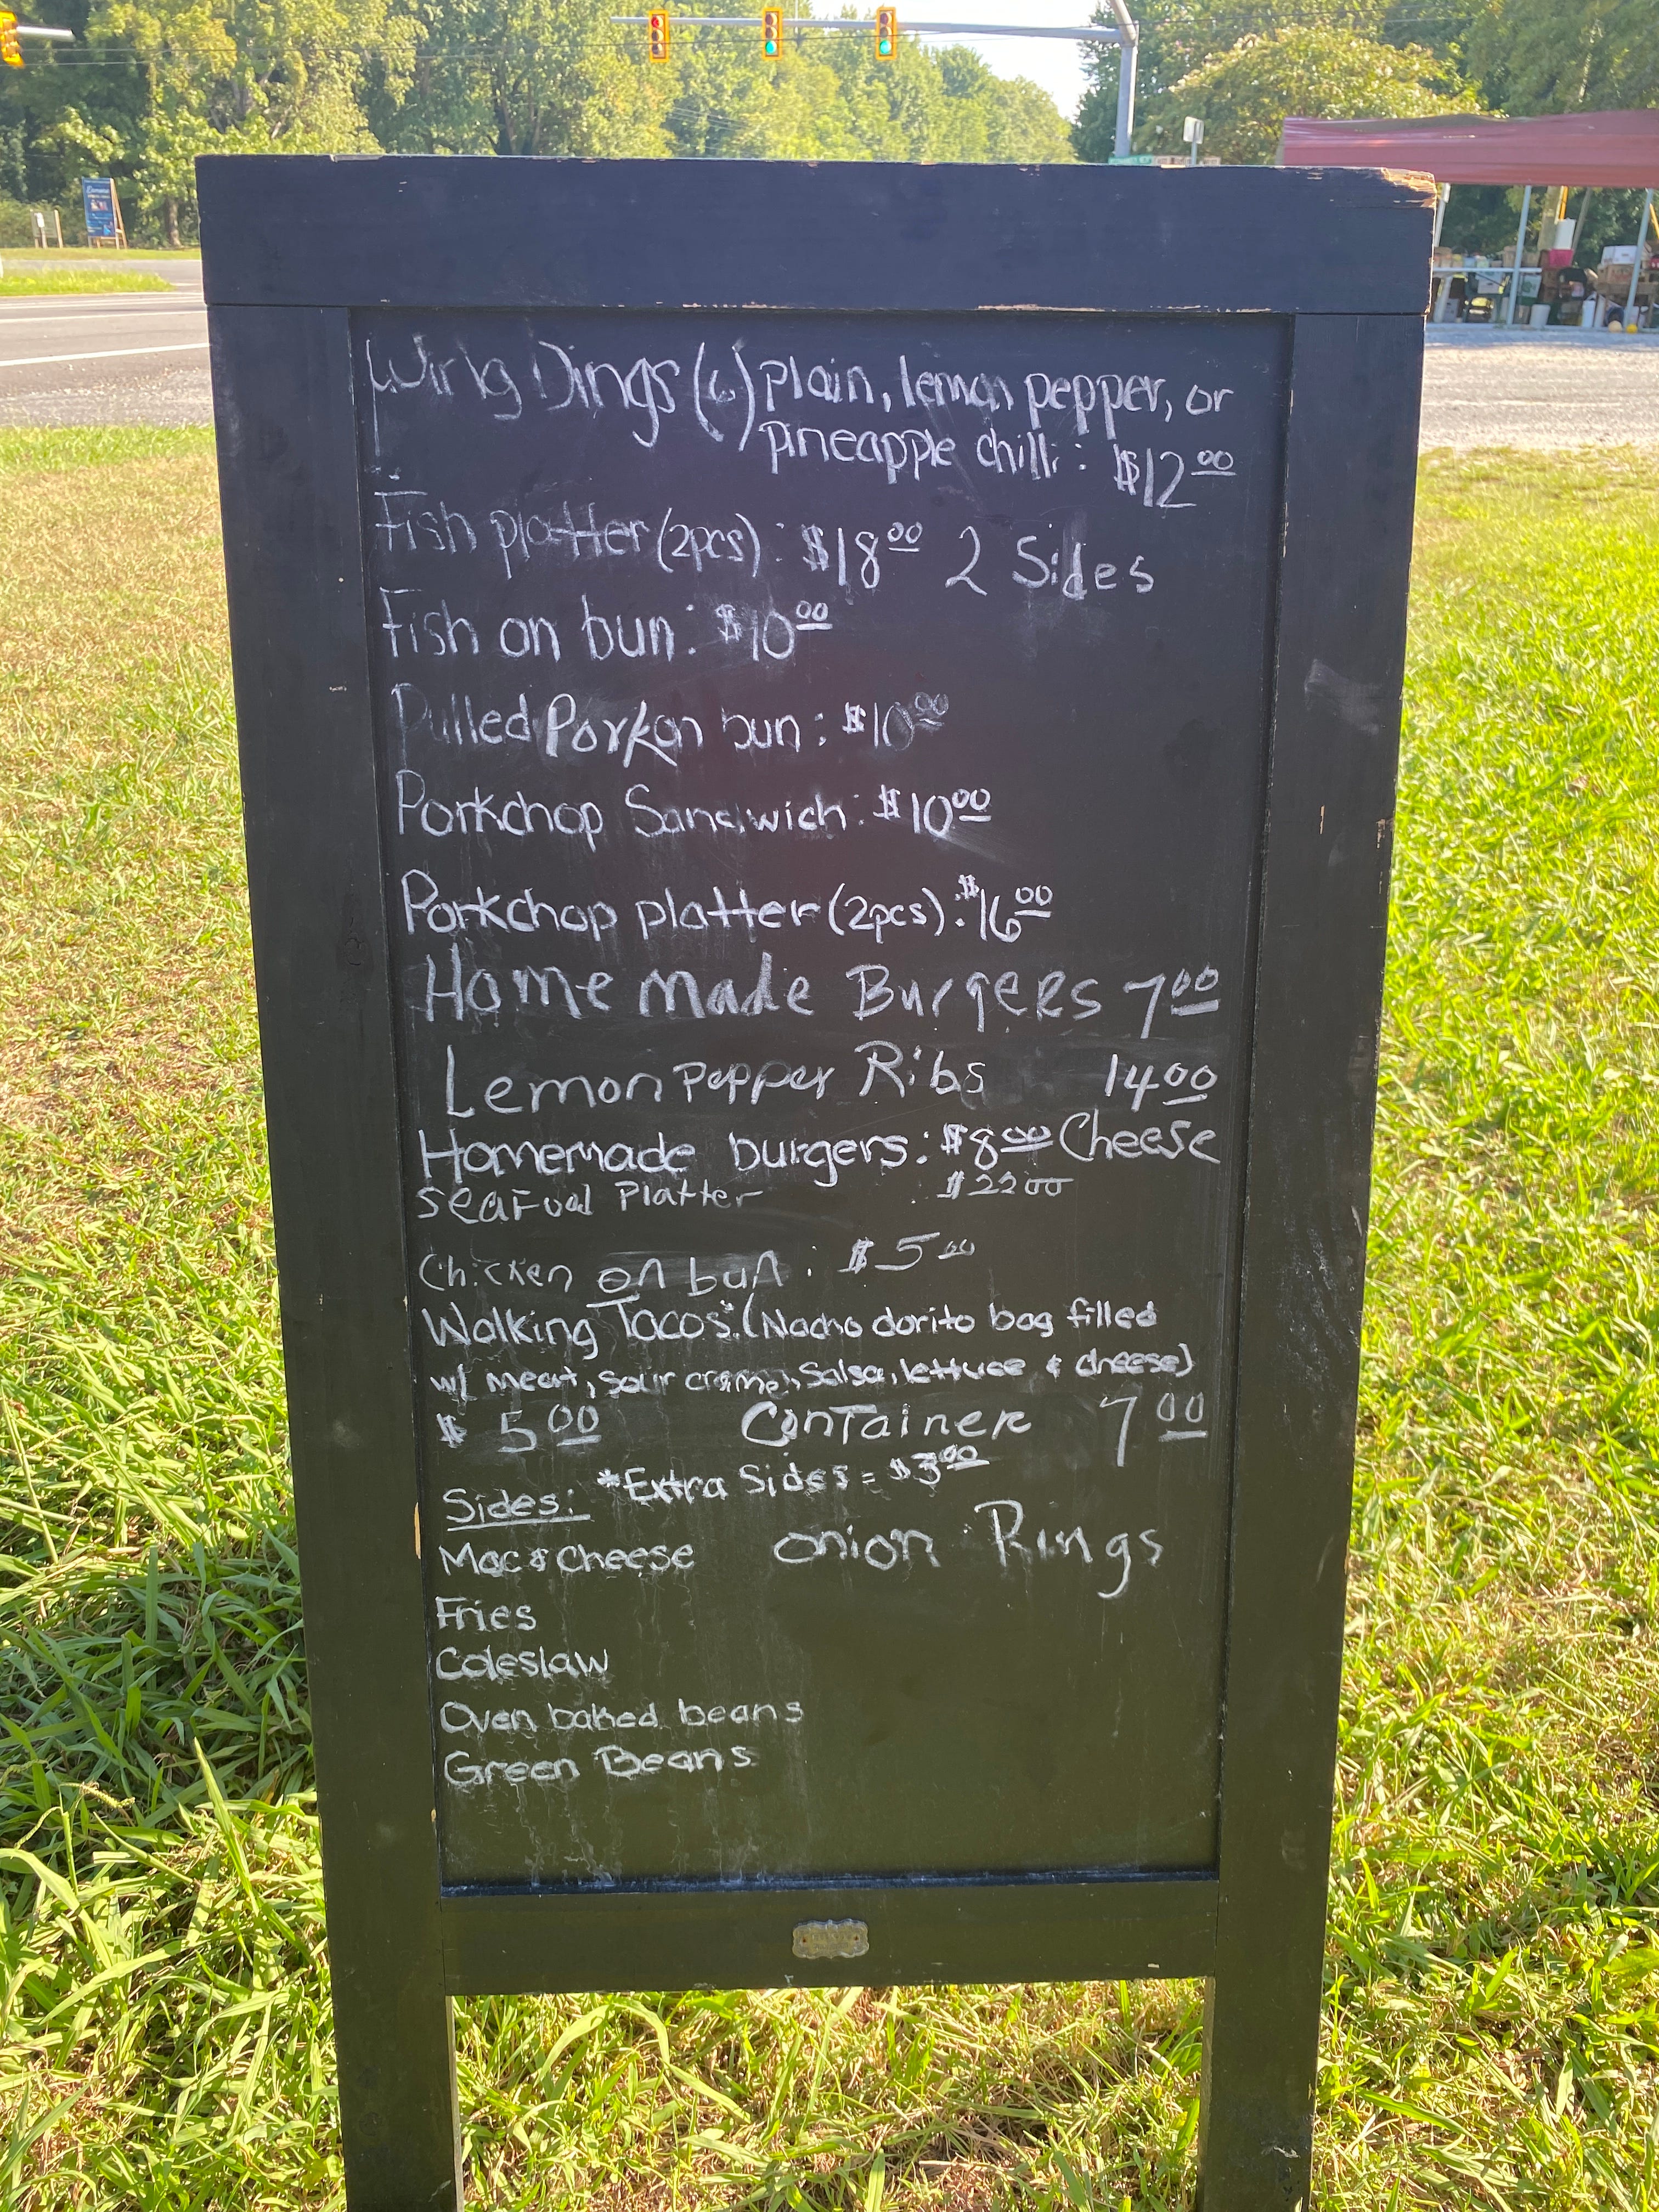 Wing Dings (6) plain, lemon pepper, or
pineapple chilli: $12.00
Fish platter (2pcs): $18.00 2 Sides
Fish on bun: $10.00
Pulled Pork on bun: $10.00
Porkchop Sandwich: $10.00
Porkchop platter (2pcs): $16.00
Home made Burgers 7.00
Lemon pepper Ribs 14.00
Homemade burgers: $8.00 Cheese
Seafood Platter : $22.00
Chicken on bun: $5.00
Walking Tacos: (Nacho dorito bag filled
w/ meat, sour creme, salsa, lettuce & cheese)
$ 5.00 Container 7.00
*Extra Sides = $3.00
Sides:
Mac & Cheese onion Rings
Fries
Coleslaw
Oven baked beans
Green Beans